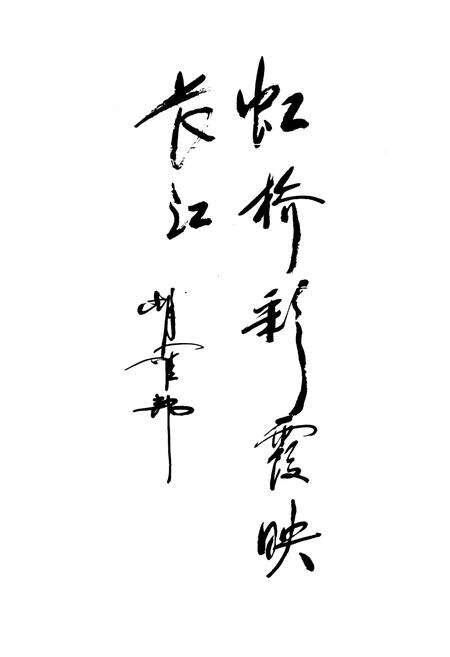 虹桥彩霞映
长江
胡耀邦